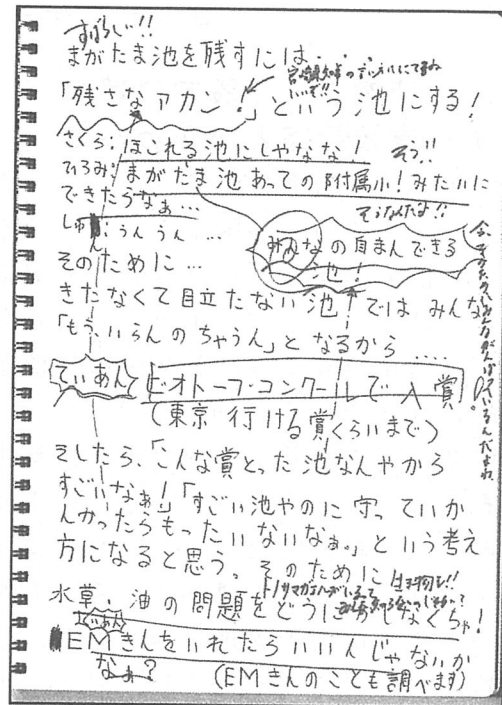 すばらしい!!
まがたま池を残すには…
「残さなアカン!」という池にする!
さくら:ほこれる池にしやなな!
そう!!
ひろみ:まがたま池あっての附属小!みたいに
できたらなぁ…
そうなんだよ!!
しゅん:うんうん…
みんなの自まんできる
池!
そのために…
きたなくて目立たない池ではみんな
「もう、いらんのちゃうん」となるから….
ていあん
ビオトープ・コンクールで入賞
(東京行ける賞くらいまで)
そしたら、「こんな賞とった池なんやから
すごいなぁ!」「すごい池やのに守っていか
んかったらもったいないなぁ。」という考え
方になると思う。そのために
生き物も!!
水草、油の問題をどうにかしなくちゃ!
ていあん
EMきんをいれたらいいんじゃないか
なぁ?
(EMきんのことも調べます)